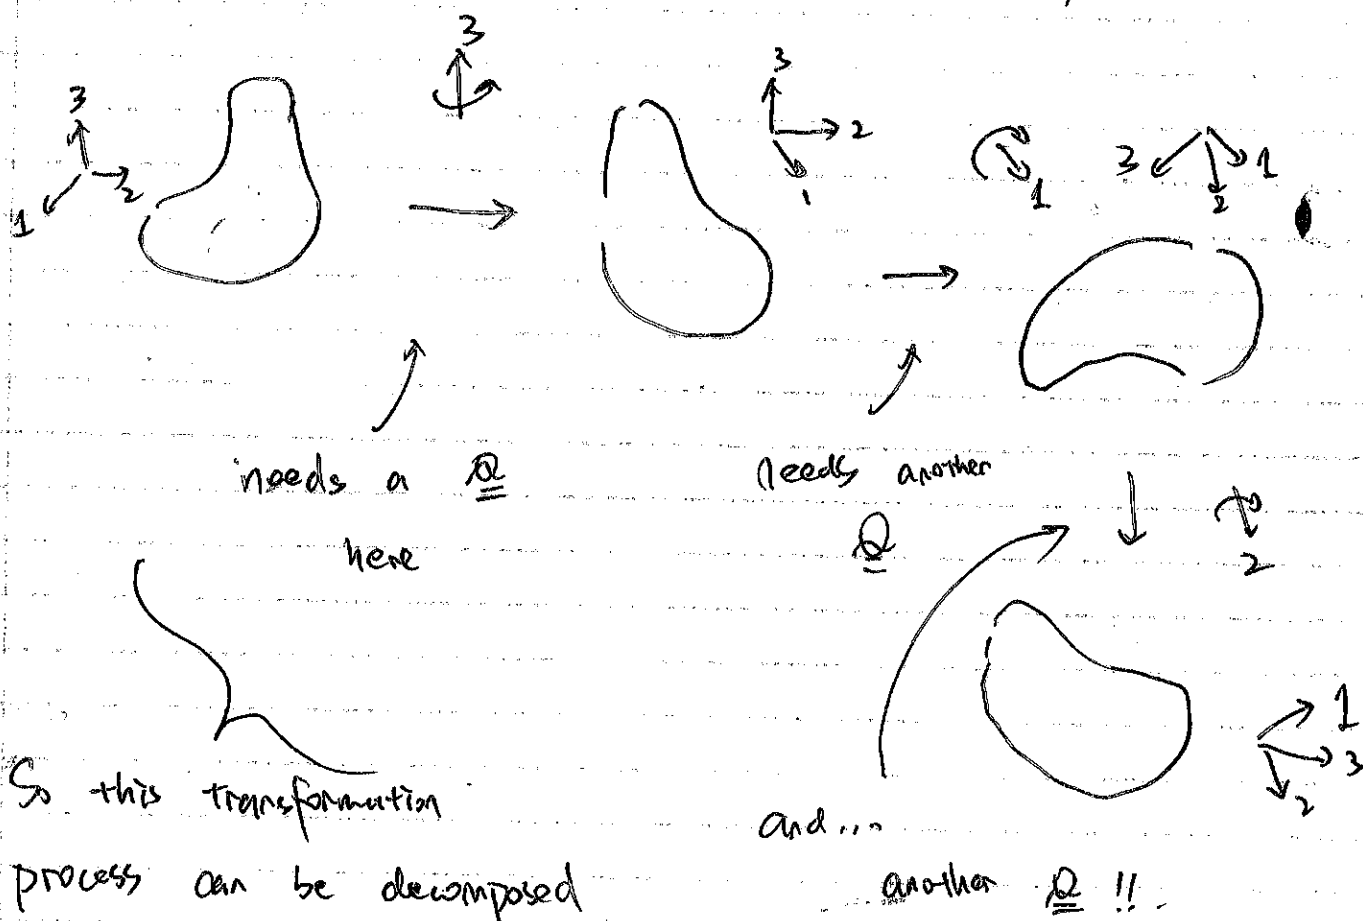 3
3
3
2
1
2
1
3
1
2
1
needs a Q
here
needs another
Q
2
1
3
2
So this transformation
process can be decomposed
and...
another Q !!